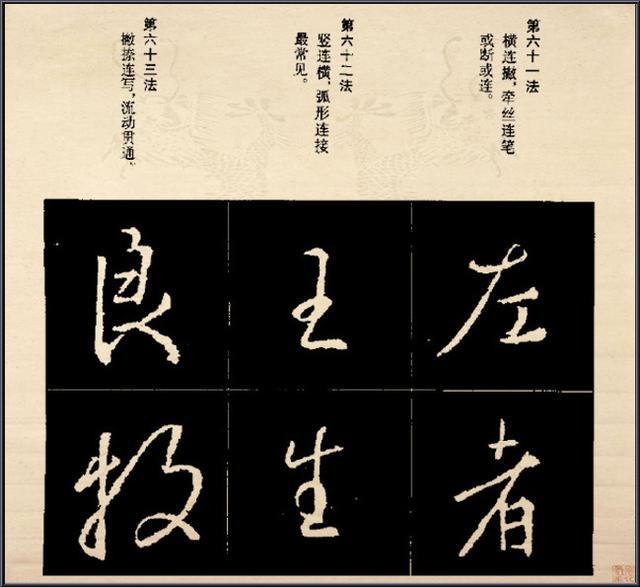 第六十一法
横连撇，牵丝连笔
或断或连。
第六十二法
竖连横，弧形连接
最常见。
第六十三法
撇捺连写，流动贯通。
左
者
王
生
良
牧